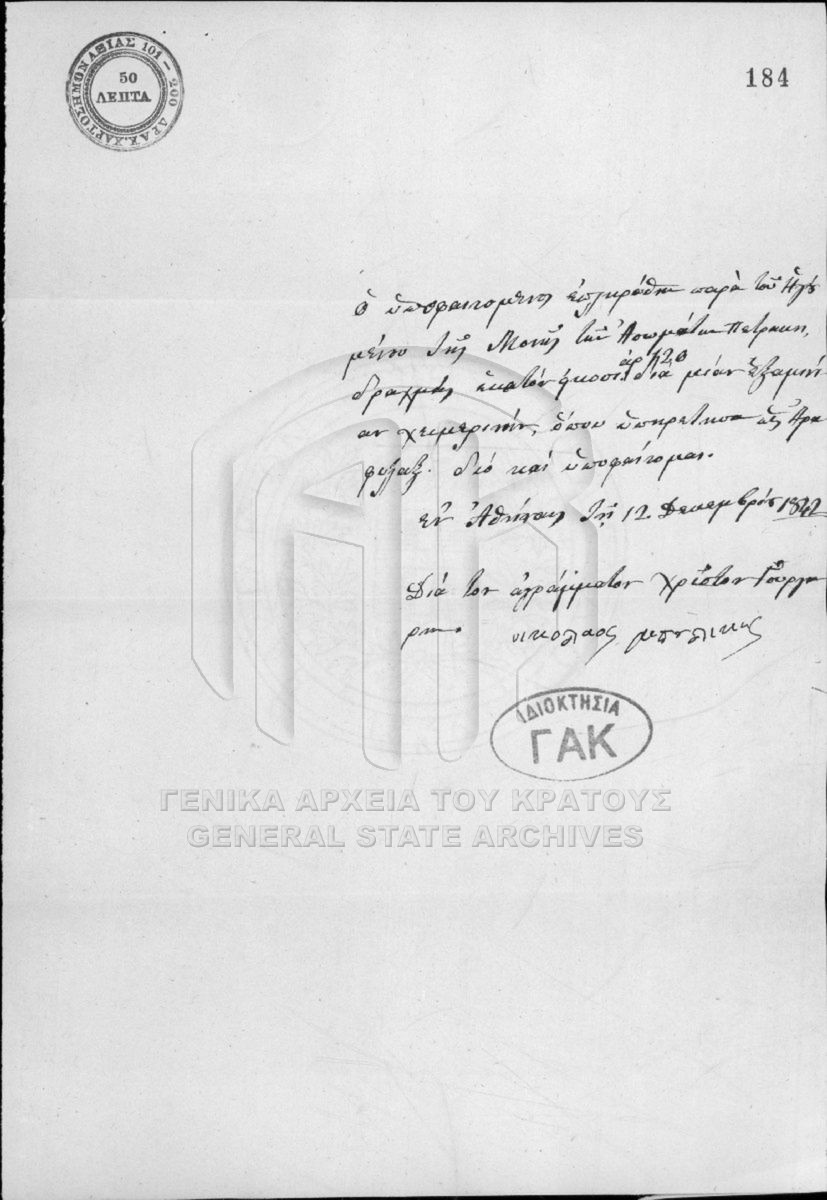 ΧΑΡΤΟΣΗΜΟΝ ΑΞΙΑΣ 101 – 200 ΔΡΑΧ.
50
ΛΕΠΤΑ
184
ὁ ὑποφαινομενος ἐπληρόθην παρὰ τοῦ Ἡγου
μένου τῆς Μονῆς τῶν Ἀσωμάτων Πετρακη,
δραχμάς ἑκατόν ηκοσι ἀρ 120 διά μιάν ἑξαμηνί
αν χειμερινήν, ὁπου ὑπηρετησα
φυλαξ. διό καί ὑποφαίνομαι.
ἐν Ἀθήναις τῇ 12 Δεκεμβρίου 1842
Διά τον ἀγράμματον Χρίστον
νικολαος
ΙΔΙΟΚΤΗΣΙΑ
ΓΑΚ
ΓΕΝΙΚΑ ΑΡΧΕΙΑ ΤΟΥ ΚΡΑΤΟΥΣ
GENERAL STATE ARCHIVES